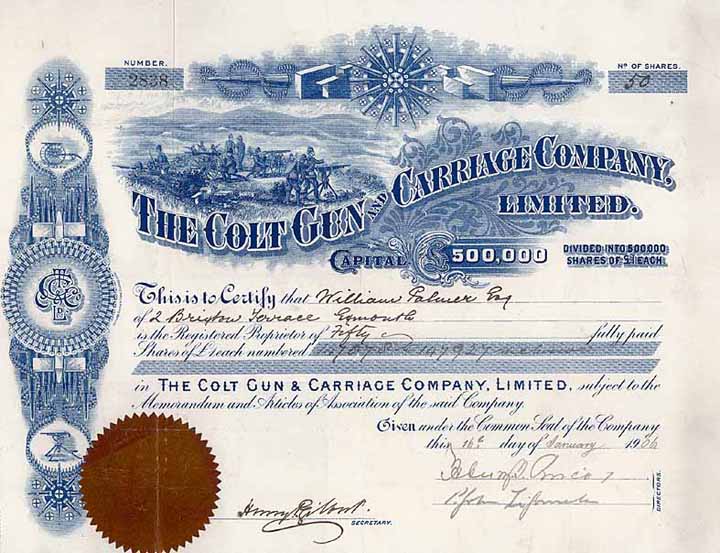 NUMBER.
2838
Nº OF SHARES.
50
THE COLT GUN AND CARRIAGE COMPANY,
LIMITED.
CAPITAL £500,000
DIVIDED INTO 500,000
SHARES OF £1 EACH.
This is to Certify that William Palmer Esq
of 2 Brixton Terrace Exmouth
is the Registered Proprietor of Fifty fully paid
Shares of £1 each numbered
in THE COLT GUN & CARRIAGE COMPANY, LIMITED, subject to the
Memorandum and Articles of Association of the said Company.
Given under the Common Seal of the Company
this 16th day of January 1906
DIRECTORS.
Henry Gilbert.
SECRETARY.